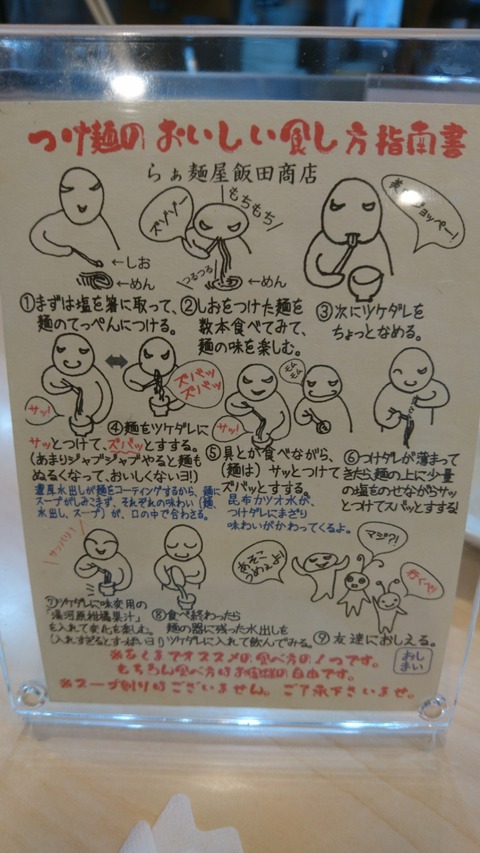 つけ麺のおいしい食し方指南書
らぁ麺屋飯田商店
ズゾゾー
もちもち
つるつる
←しお
←めん
←めん
ショッペー!
①まずは塩を箸に取って、
麺のてっぺんにつける。
②しおをつけた麺を
数本食べてみて、
麺の味を楽しむ。
③次にツケダレを
ちょっとなめる。
サッ!
ズバッ
ズバッ
④麺をツケダレに
サッとつけて、ズバッとすする。
(あまりジャブジャブやると麺も
ぬるくなって、おいしくないヨ!)
濃厚水出しが麺をコーティングするから、麺に
スープがしみこまず、それぞれの味わい(麺、
水出し、スープ)が、口の中で合わさる。
サッ!
モム
モム
⑤具とか食べながら、
(麺は)サッとつけて
ズバッとすする。
昆布カツオ水が、
つけダレにまざり
味わいがかわってくるよ。
⑥つけダレが薄まって
きたら、麺の上に少量
の塩をのせながらサッ
とつけてスパッとすする!
サッパリ!
⑦ツケダレに味変用の
「湯河原柑橘果汁」
を入れて変化を楽しむ。
(入れすぎるとすっぱいヨ!)
⑧食べ終わったら
麺の器に残った水出しを
ツケダレに入れて飲んでみる。
あそこ
うめぇよ!
マジ?!
行くべ!
⑨友達におしえる。
おし
まい
※あくまでオススメの食べ方の1つです。
もちろん食べ方はお客様の自由です。
※スープ割りはございません。ご了承下さいませ。